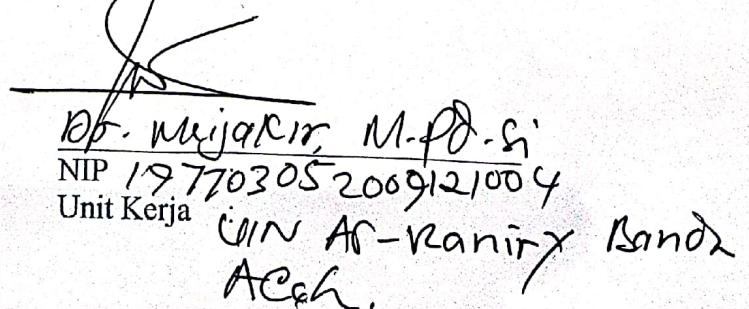 Dr. Mujakir, M.Pd.Si
NIP 197703052009121004
Unit Kerja UIN Ar-Raniry Banda
Aceh.